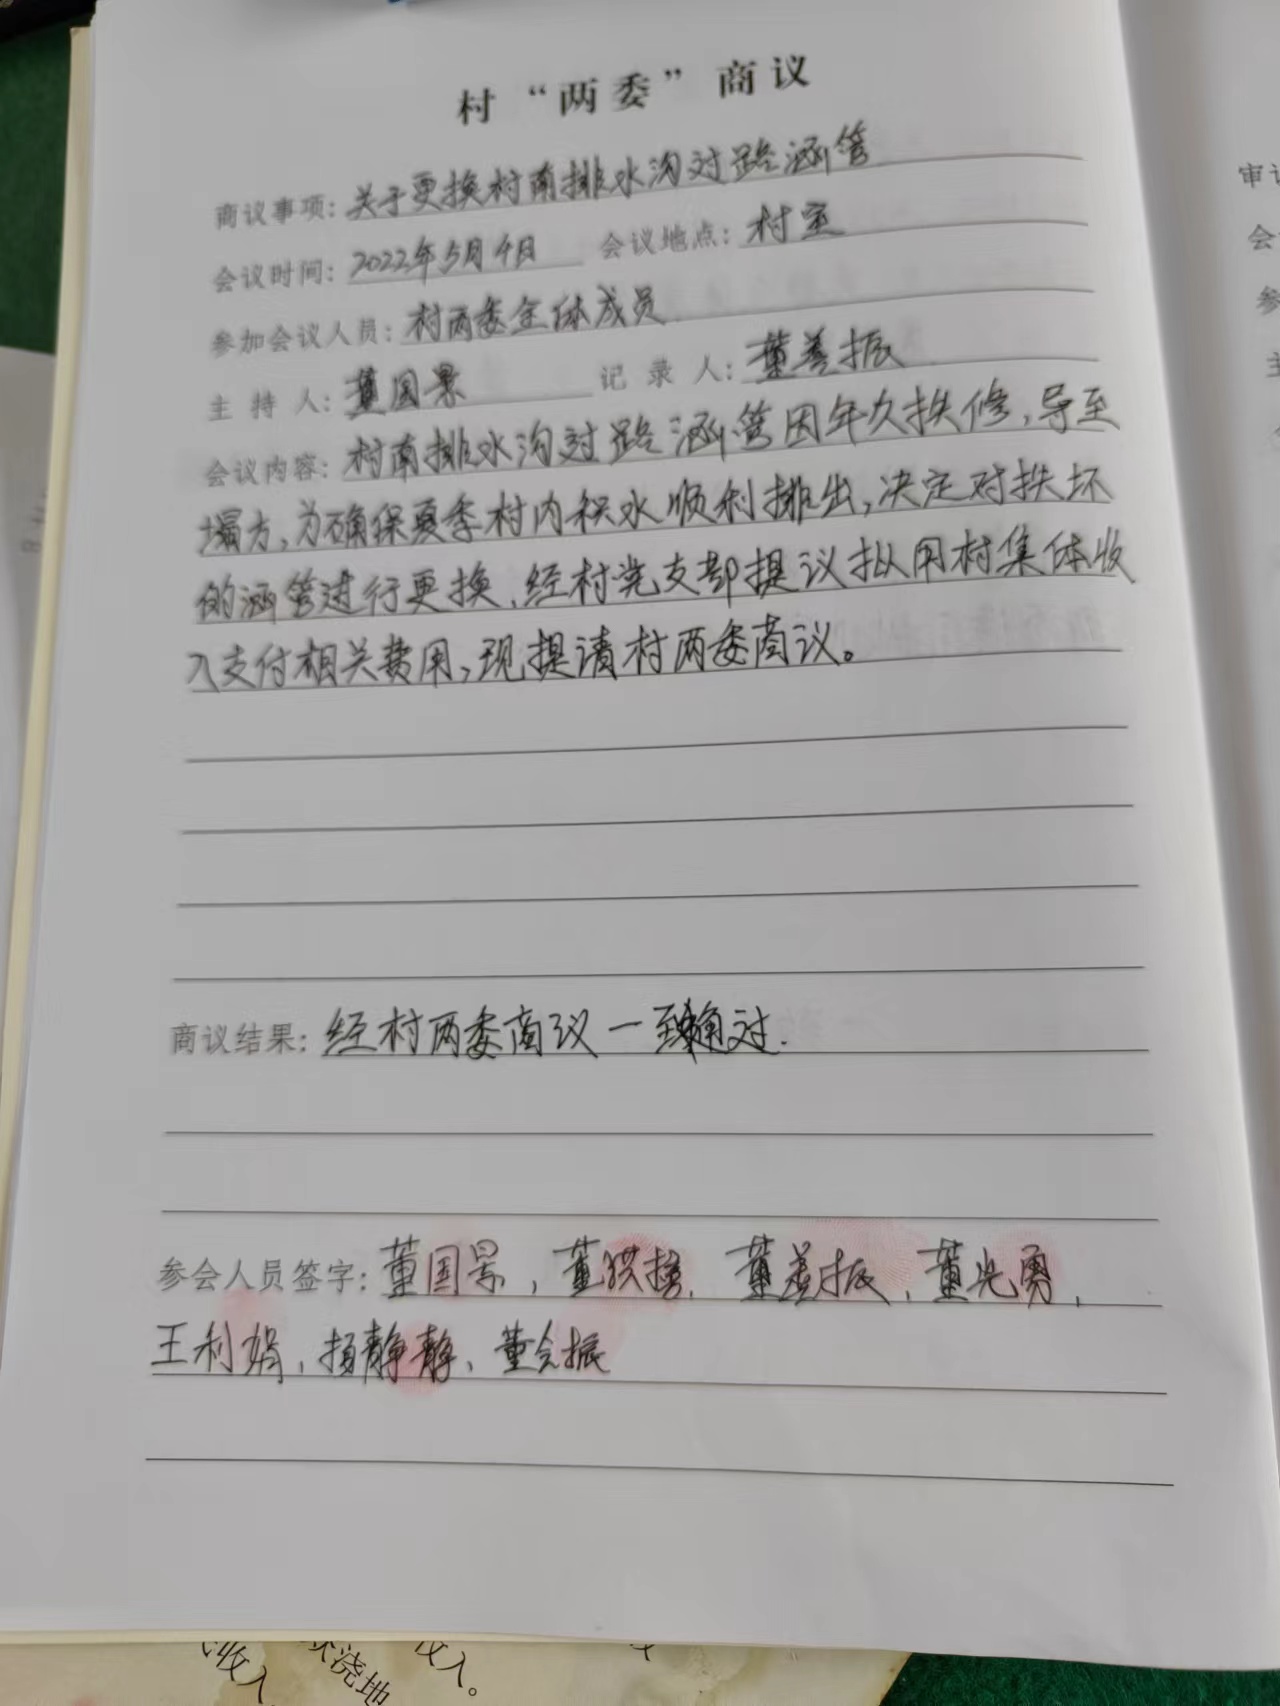 村“两委”商议
商议事项：关于更换村南排水沟过路涵管
会议时间：2022年5月4日 会议地点：村室
参加会议人员：村两委全体成员
主持人：董国景 记录人：董善振
会议内容：村南排水沟过路涵管因年久抶修，导至
塌方，为确保夏季村内积水顺利排出，决定对抶坏
的涵管进行更换，经村党支部提议拟用村集体收
入支付相关费用，现提请村两委商议。
商议结果：经村两委商议一致通过.
参会人员签字：董国景，董洪、董善振、董光勇，
王利娟、杨静静、董会振
审议
会
参
主
收入
浇地
收入。